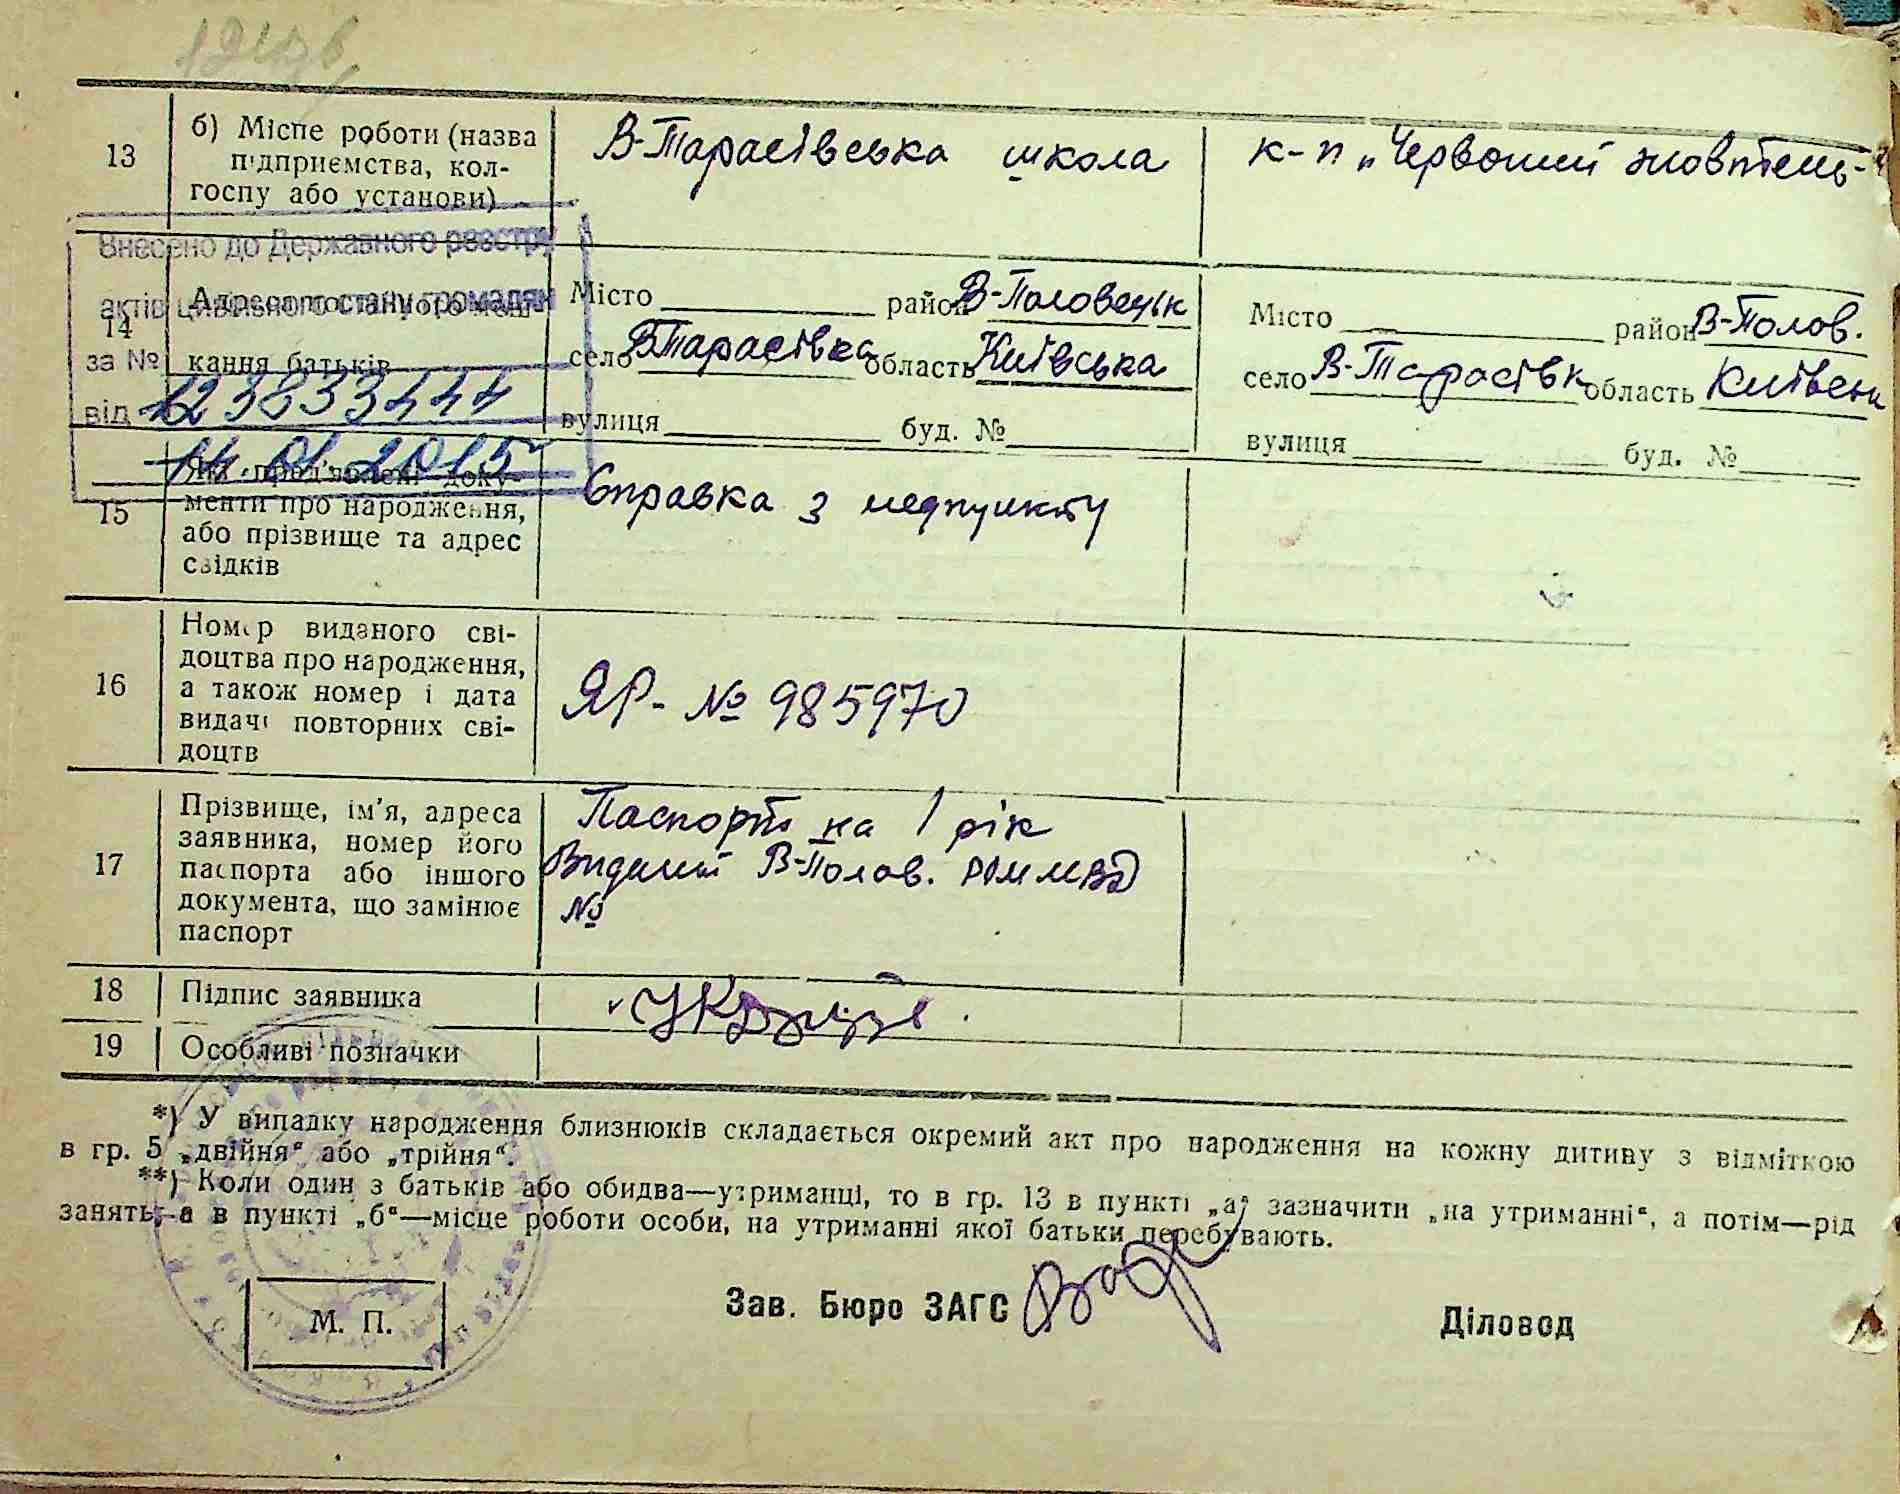 13
б) Місце роботи (назва
підприємства, кол-
госпу або установи)
В-Тарасівська школа
к-п „Червоний жовтень-
Внесено до Державного реєстру
актів цивільного стану громадян
за №
від 12383344
14.01.2015
14
Адреса постійного меш-
кання батьків
Місто район В-Половецьк
село В Тарасівка область Київська
вулиця буд. №
Місто район В-Полов.
село В-Тарасівк область Київськ
вулиця буд. №
15
Які пред'явлені доку-
менти про народження,
або прізвище та адрес
свідків
Справка з медпункту
16
Номер виданого сві-
доцтва про народження,
а також номер і дата
видачі повторних сві-
доцтв
ЯР- № 985970
17
Прізвище, ім'я, адреса
заявника, номер його
паспорта або іншого
документа, що замінює
паспорт
Паспорт на 1 рік
Виданий В-Полов.
№
18
Підпис заявника
19
Особливі позначки
*) У випадку народження близнюків складається окремий акт про народження на кожну дитину з відміткою
в гр. 5 „двійня“ або „трійня“.
**) Коли один з батьків або обидва—утриманці, то в гр. 13 в пункті „а“ зазначити „на утриманні“, а потім—рід
занять, а в пункті „б“—місце роботи особи, на утриманні якої батьки перебувають.
М. П.
Зав. Бюро ЗАГС
Діловод